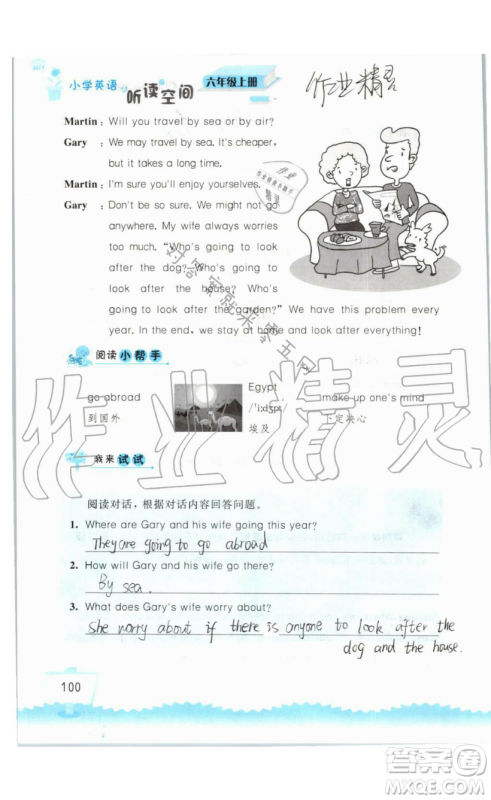 小学英语
听读空间
六年级上册
作业精灵
Martin: Will you travel by sea or by air?
Gary: We may travel by sea. It's cheaper,
but it takes a long time.
Martin: I'm sure you'll enjoy yourselves.
Gary: Don't be so sure. We might not go
anywhere. My wife always worries
too much. "Who's going to look
after the dog? Who's going to
look after the house? Who's
going to look after the garden?" We have this problem every
year. In the end, we stay at home and look after everything!
对答案就来零五网
阅读小帮手
go abroad
到国外
Egypt
/'iːdʒɪpt/
埃及
make up one's mind
下定决心
作业精灵
我来试试
阅读对话，根据对话内容回答问题。
1. Where are Gary and his wife going this year?
They are going to go abroad
2. How will Gary and his wife go there?
By sea.
3. What does Gary's wife worry about?
She worry about if there is anyone to look after
dog and the house.
100
答案圈
MXQE.COM